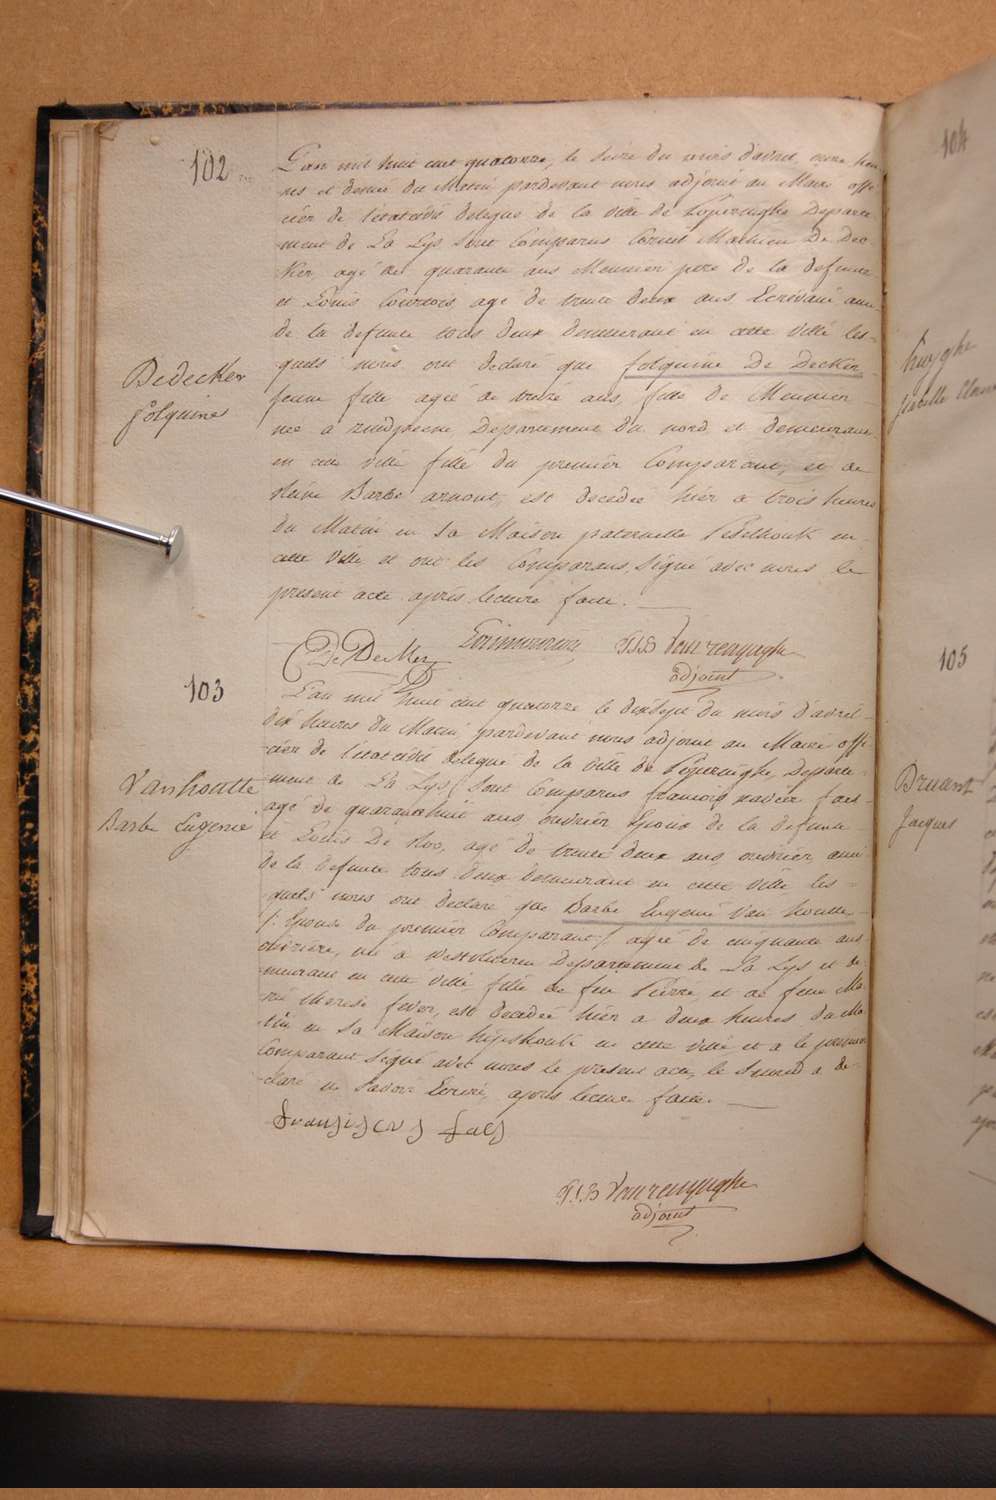 102
L'an mil huit cent quatorze, le seize du mois d'avril, onze heu-
res et demie du Matin pardevant nous adjoint au Maire offi-
cier de l'etatcivil delegué de la ville de Poperinghe Departe-
ment de La Lys sont Comparus Corneil Mathieu De Dec-
Ker agé de quarante ans Meunier pere de la defunte
et Louis Courtois, agé de trente deux ans, Ecrivain ami
de la defunte tous deux demeurant en cette ville les-
quels nous ont declaré que folquine De Decker
jeune fille agée de treize ans, fille de Meunier
née a Zuidpeene Departement du nord et demeurant
en cette ville fille du premier Comparant, et de
Reine Barbe arnout, est decedée hier a trois heures
du Matin en sa Maison paternelle Peselhouk en
cette ville et ont les Comparans, signé avec nous le
present acte après lecture faite.
Dedecker
folquine
De DecKer
F.J.B Vanrenynghe
adjoint
103
L'an mil huit cent quatorze le dixsept du mois d'avril
dix heures du Matin pardevant nous adjoint au Maire offi-
cier de l'etatcivil delegué de la ville de Poperinghe, Departe-
ment de La Lys, sont Comparus francois xavier faes
agé de quarantehuit ans ouvrier Epoux de la defunte
et Louis De Roo, agé de trente deux ans ouvrier, ami
de la defunte tous deux demeurant en cette ville les-
quels nous ont declaré que Barbe Eugenie Van houtte
/: Epouse du premier Comparant / agée de cinquante ans
ouvriere, née a westvleteren Departement de La Lys et de-
meurant en cette ville fille de feu Pierre, et de feue Ma-
rie therese fever, est decedée hier a deux heures du Ma-
tin en sa Maison hipshouk en cette ville et a le premier
Comparant signé avec nous le present acte, le second a de-
claré ne savoir Ecrire, après lecture faite.
Vanhoutte
Barbe Eugenie
fransiscus faes
F.J.B Vanrenynghe
adjoint
104
huyghe
105
Bruant
Jacques